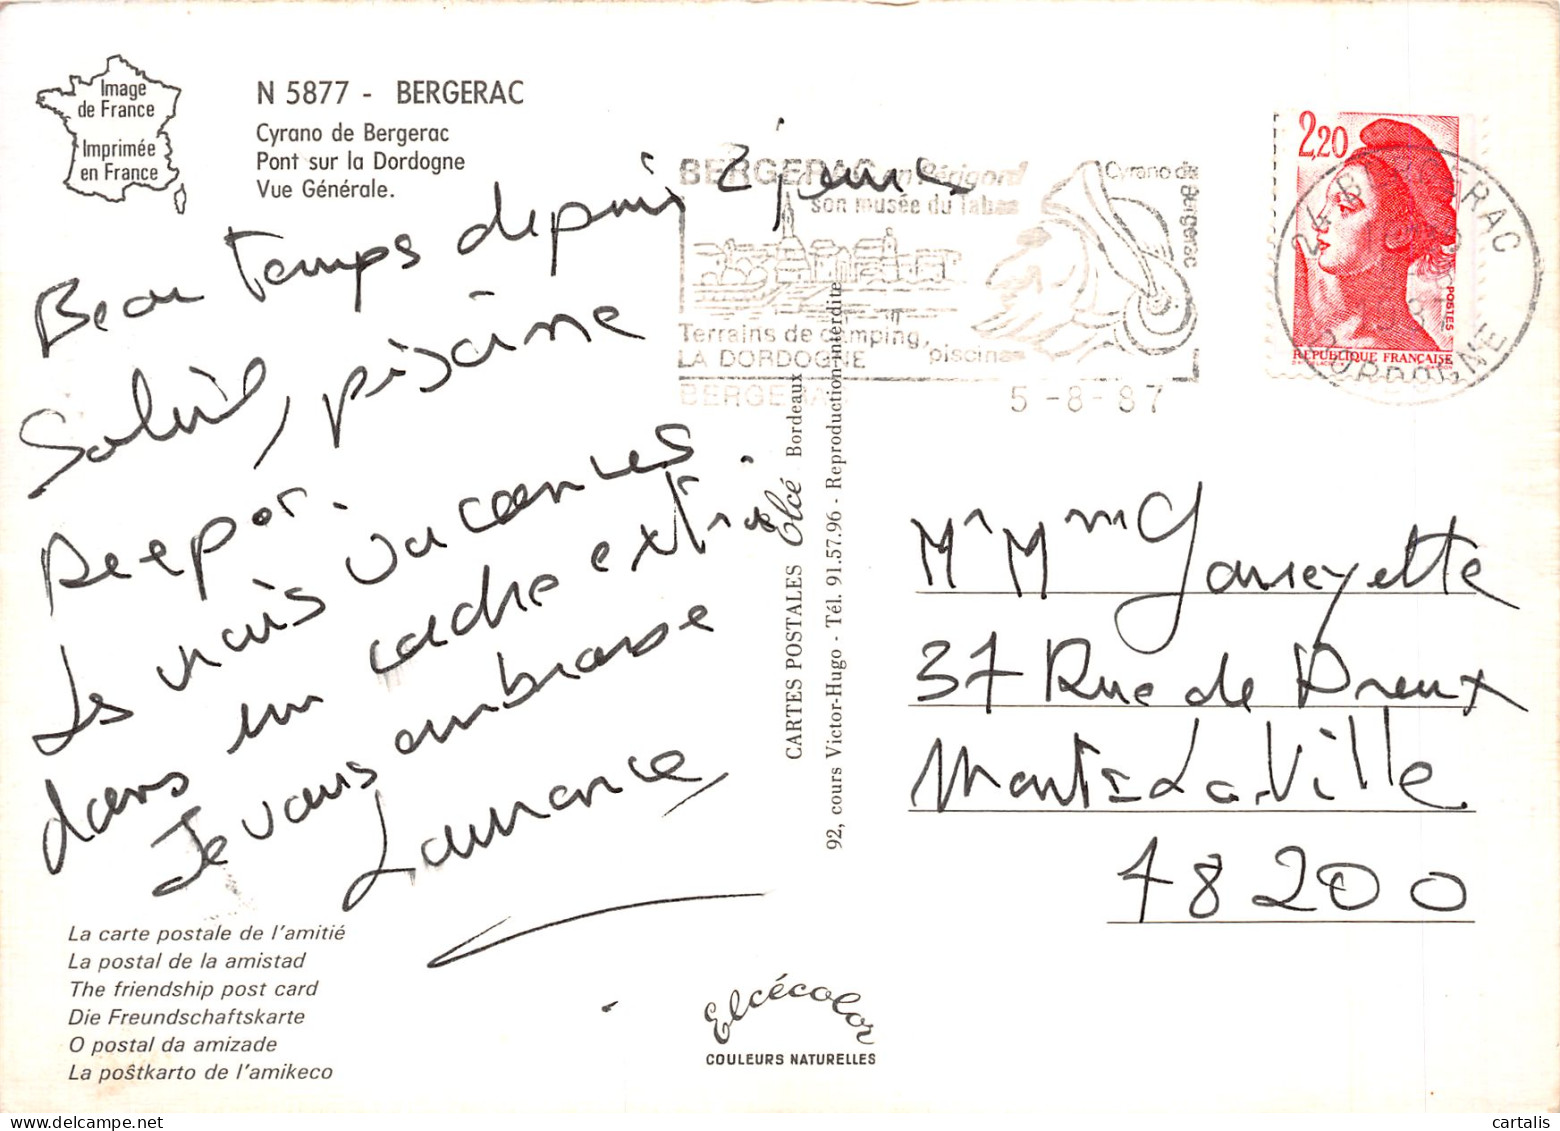 Image
de France
Imprimée
en France
N 5877 - BERGERAC
Cyrano de Bergerac
Pont sur la Dordogne
Vue Générale.
Beau temps depuis 2 jours
Soleil, piscine
Repos.
Les vrais vacances
dans un cadre extra.
Je vous embrasse
Laurence
La carte postale de l'amitié
La postal de la amistad
The friendship post card
Die Freundschaftskarte
O postal da amizade
La poŝtkarto de l'amikeco
CARTES POSTALES Elcé Bordeaux
92, cours Victor-Hugo - Tél. 91.57.96 - Reproduction interdite
Elcécolor
COULEURS NATURELLES
BERGERAC en Périgord
son musée du Tabac
Cyrano de Bergerac
Terrains de camping,
LA DORDOGNE piscines
BERGERAC
5-8-87
2,20
POSTES
REPUBLIQUE FRANÇAISE
24 BERGERAC
DORDOGNE
Mr Mme
37 Rue de Dreux
La Ville
48200
cartalis